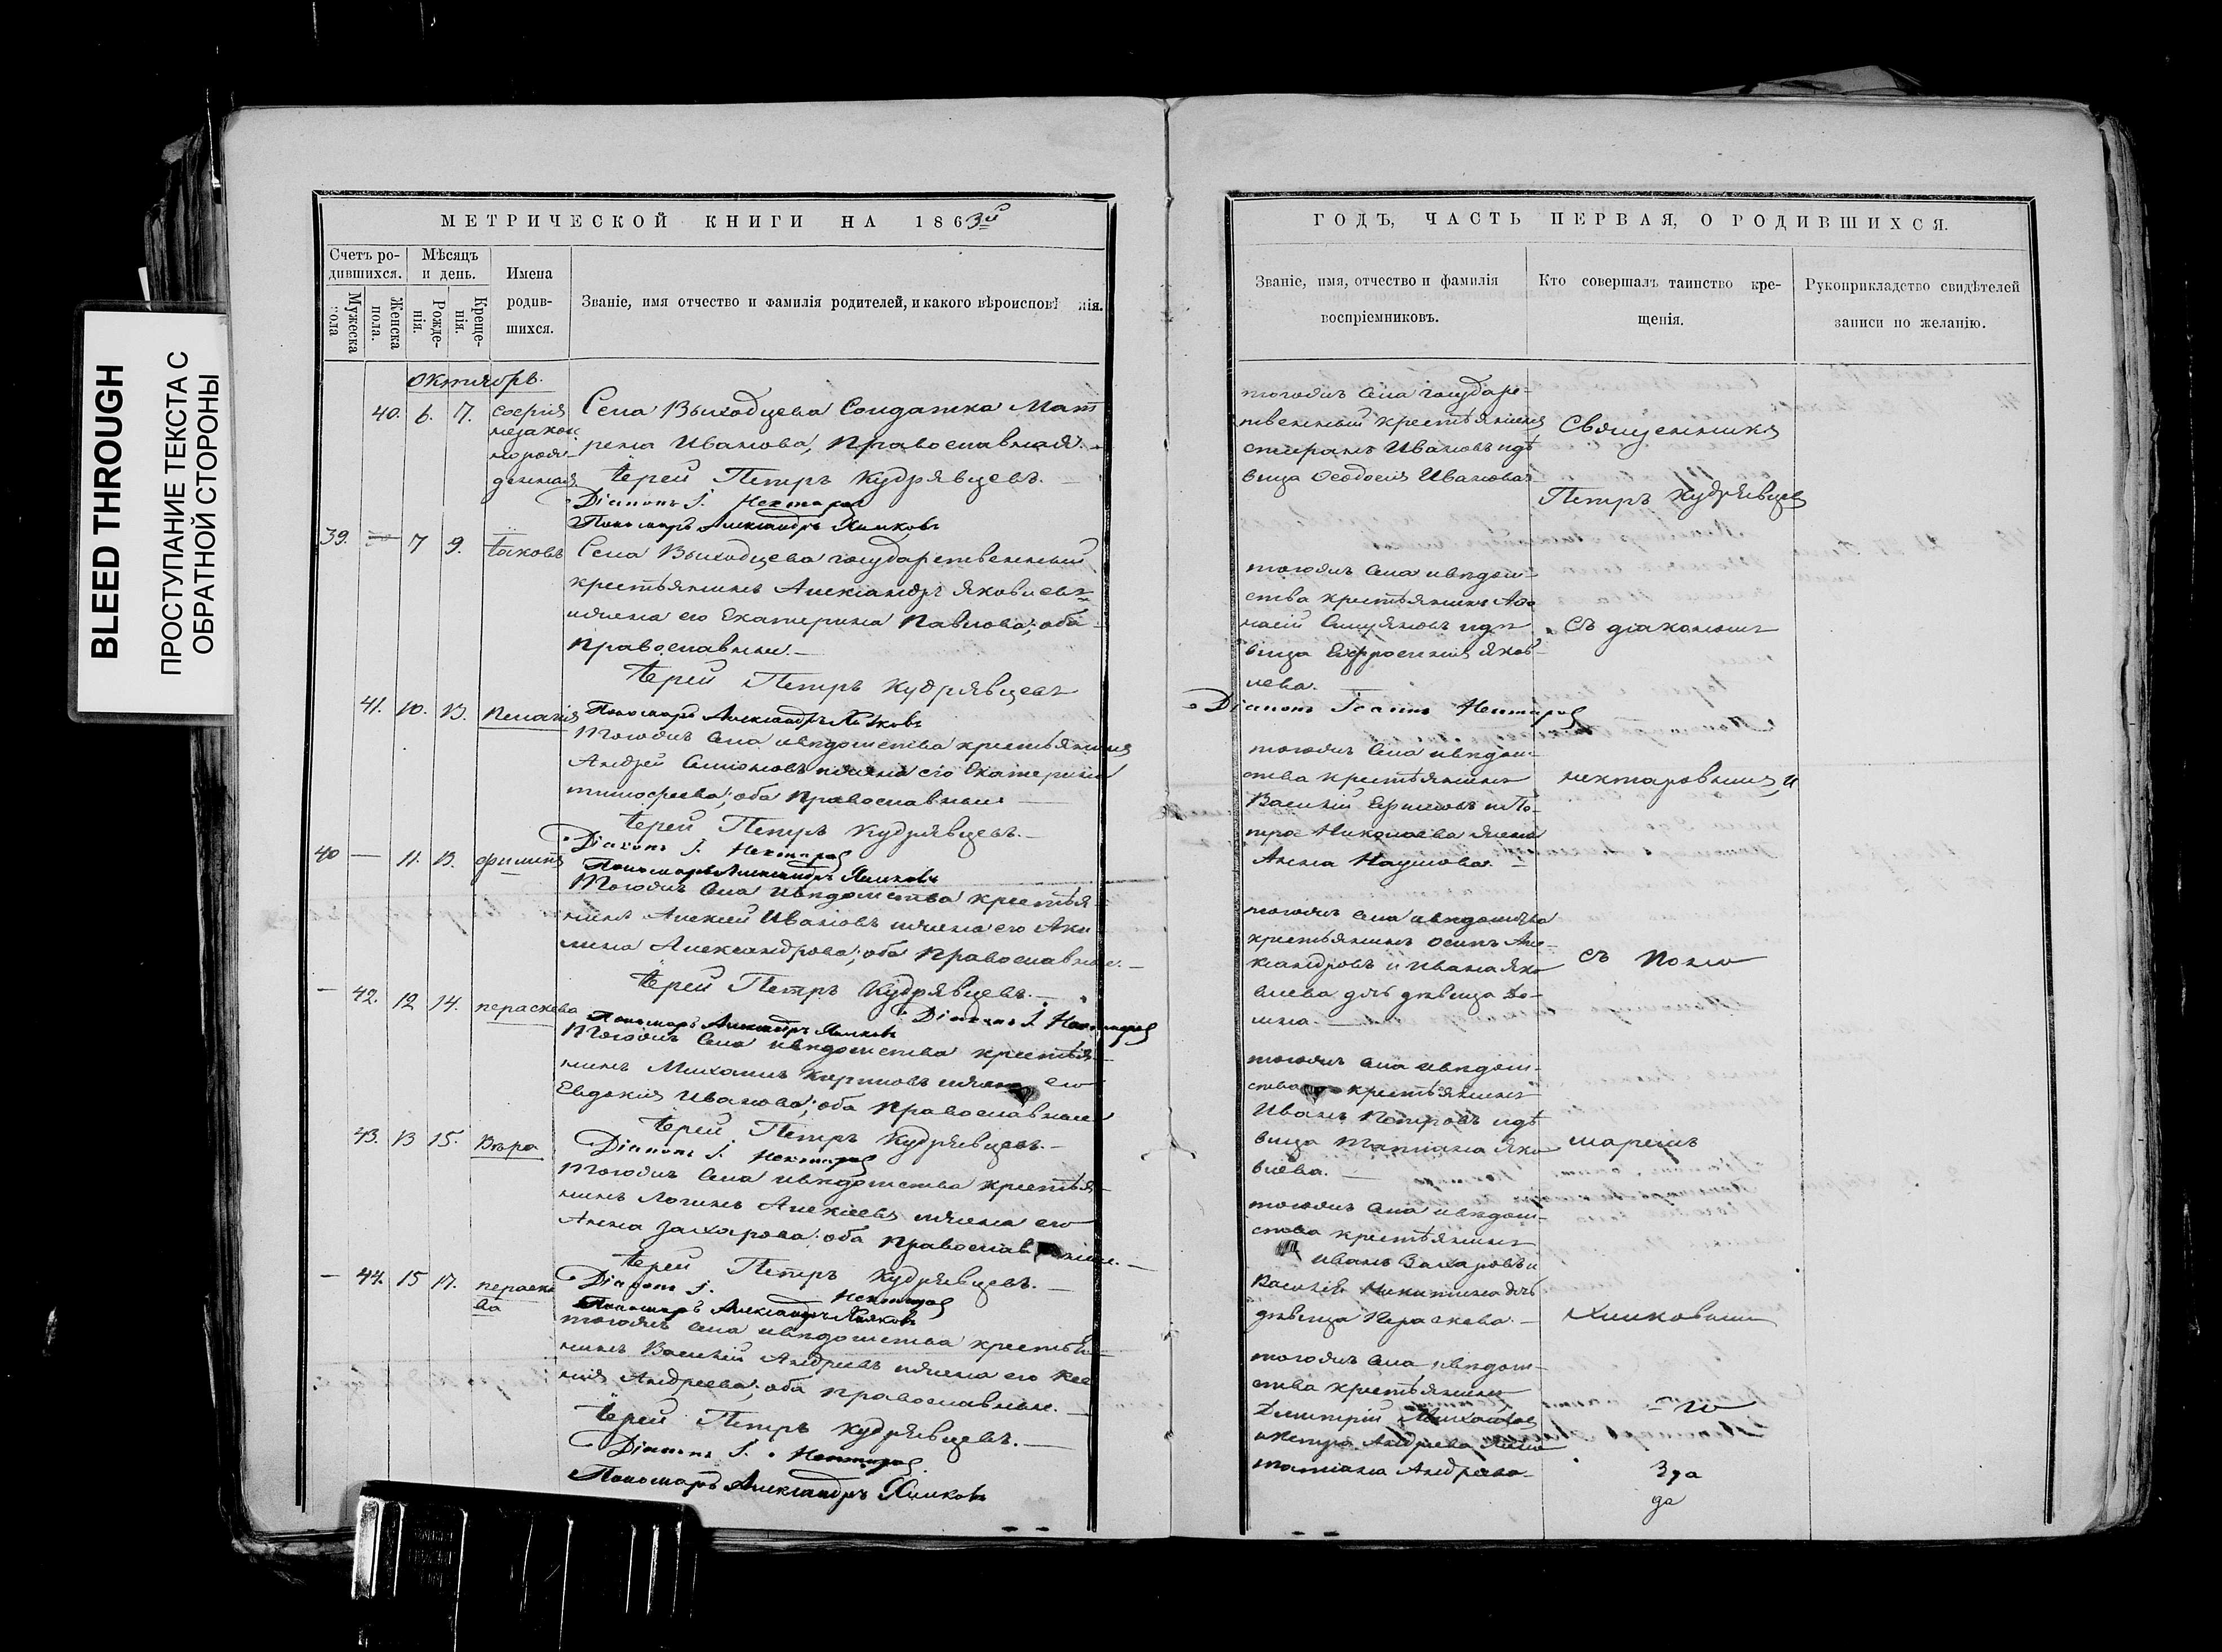 BLEED THROUGH
ПРОСТУПАНИЕ ТЕКСТА С
ОБРАТНОЙ СТОРОНЫ
МЕТРИЧЕСКОЙ КНИГИ НА 1863й
Счетъ ро-
дившихся.
Мѣсяцъ
и день.
Имена
родив-
шихся.
Званіе, имя отчество и фамилія родителей, и какого вѣроиспові нія.
Мужеска
пола
Женска
пола.
Рожде-
нія.
Креще-
нія.
октябрь.
40. 6. 7.
софія
незакон
норож
денная
Села Выходцева Солдатка Мат
рена Иванова, Православная.
Іерей Петръ Кудрявцевъ.
Діаконъ І. Нектаров
Пономарь Александръ Хилковъ
39. 7 9. Іаковъ
Села Выходцева государственный
крестьянинъ Александръ Яковлевъ
ижена его Екатерина Павлова; оба
Православные.
Іерей Петръ Кудрявцевъ
41. 10. 13. Пелагія
Пономарь Александръ Хилковъ
Тогожъ села ивѣдомства крестьянинъ
Андрей Симоновъ ижена его Екатерина
тимофеева; оба Православные
Іерей Петръ Кудрявцевъ.
Діаконъ І. Нектаров
40 — 11. 13. филиппъ
Пономарь Александръ Хилковъ
Тогожъ села ивѣдомства крестья
нинъ Алексей Ивановъ ижена его Аки
лина Александрова; оба Православные.
Іерей Петръ Кудрявцевъ.
Діаконъ І. Нектаров
— 42. 12 14. параскева
Пономарь Александръ Хилковъ
Тогожъ села ивѣдомства крестья-
нинъ Михаилъ Карповъ ижена его
Евдокія Иванова; оба Православные
Іерей Петръ Кудрявцевъ.
43. 13 15. Вѣра
Діаконъ І. Нектаров
Тогожъ села ивѣдомства крестья-
нинъ Логинъ Алексеевъ ижена его
Анна Захарова; оба Православные.
Іерей Петръ Кудрявцевъ.
— 44. 15 17. параске
ва
Діаконъ І. Нектаров
Пономарь Александръ Хилковъ
тогожъ села ивѣдомства крестья-
нинъ Василій Андреевъ ижена его Ксе
нія Андреева; оба православные.
Іерей Петръ Кудрявцевъ.
Діаконъ І. Нектаров
Пономарь Александръ Хилковъ
ГОДЪ, ЧАСТЬ ПЕРВАЯ, О РОДИВШИХСЯ.
Званіе, имя, отчество и фамилія
воспріемниковъ.
Кто совершалъ таинство кре-
щенія.
Рукоприкладство свидѣтелей
записи по желанію.
тогожъ села государс-
твенный крестьянинъ
Ивановъ идѣ
вица Ѳеодосія Иванова
Священникъ
Петръ Кудрявцев
тогожъ села ивѣдом-
ства крестьянинъ Аѳа
насій идѣ
вица Евфросинія Яков-
лева.
Съ діакономъ
Діаконъ Іоаннъ Нектаров
тогожъ села ивѣдом-
ства крестьянинъ
Василій Ефимовъ иПе-
тра Николаева жена
Анна Наумова.
нектаровымъ, и
тогожъ села ивѣдомства
крестьянинъ осипъ Але-
ксандровъ и Ивана Яко
влева дчь дѣвица До-
мна.
съ Поно
тогожъ села ивѣдом-
ства крестьянинъ
Иванъ Петровъ идѣ
вица Татіана Яко
влева.
маремъ
тогожъ села ивѣдом-
ства крестьянинъ
иванъ Захаровъ и
Василія Никитина дчь
дѣвица Параскева.
Хилковымъ
тогожъ села ивѣдом-
ства крестьянинъ
Димитрій Михайлов
иПетра Андреева жена
татіана Андреева.